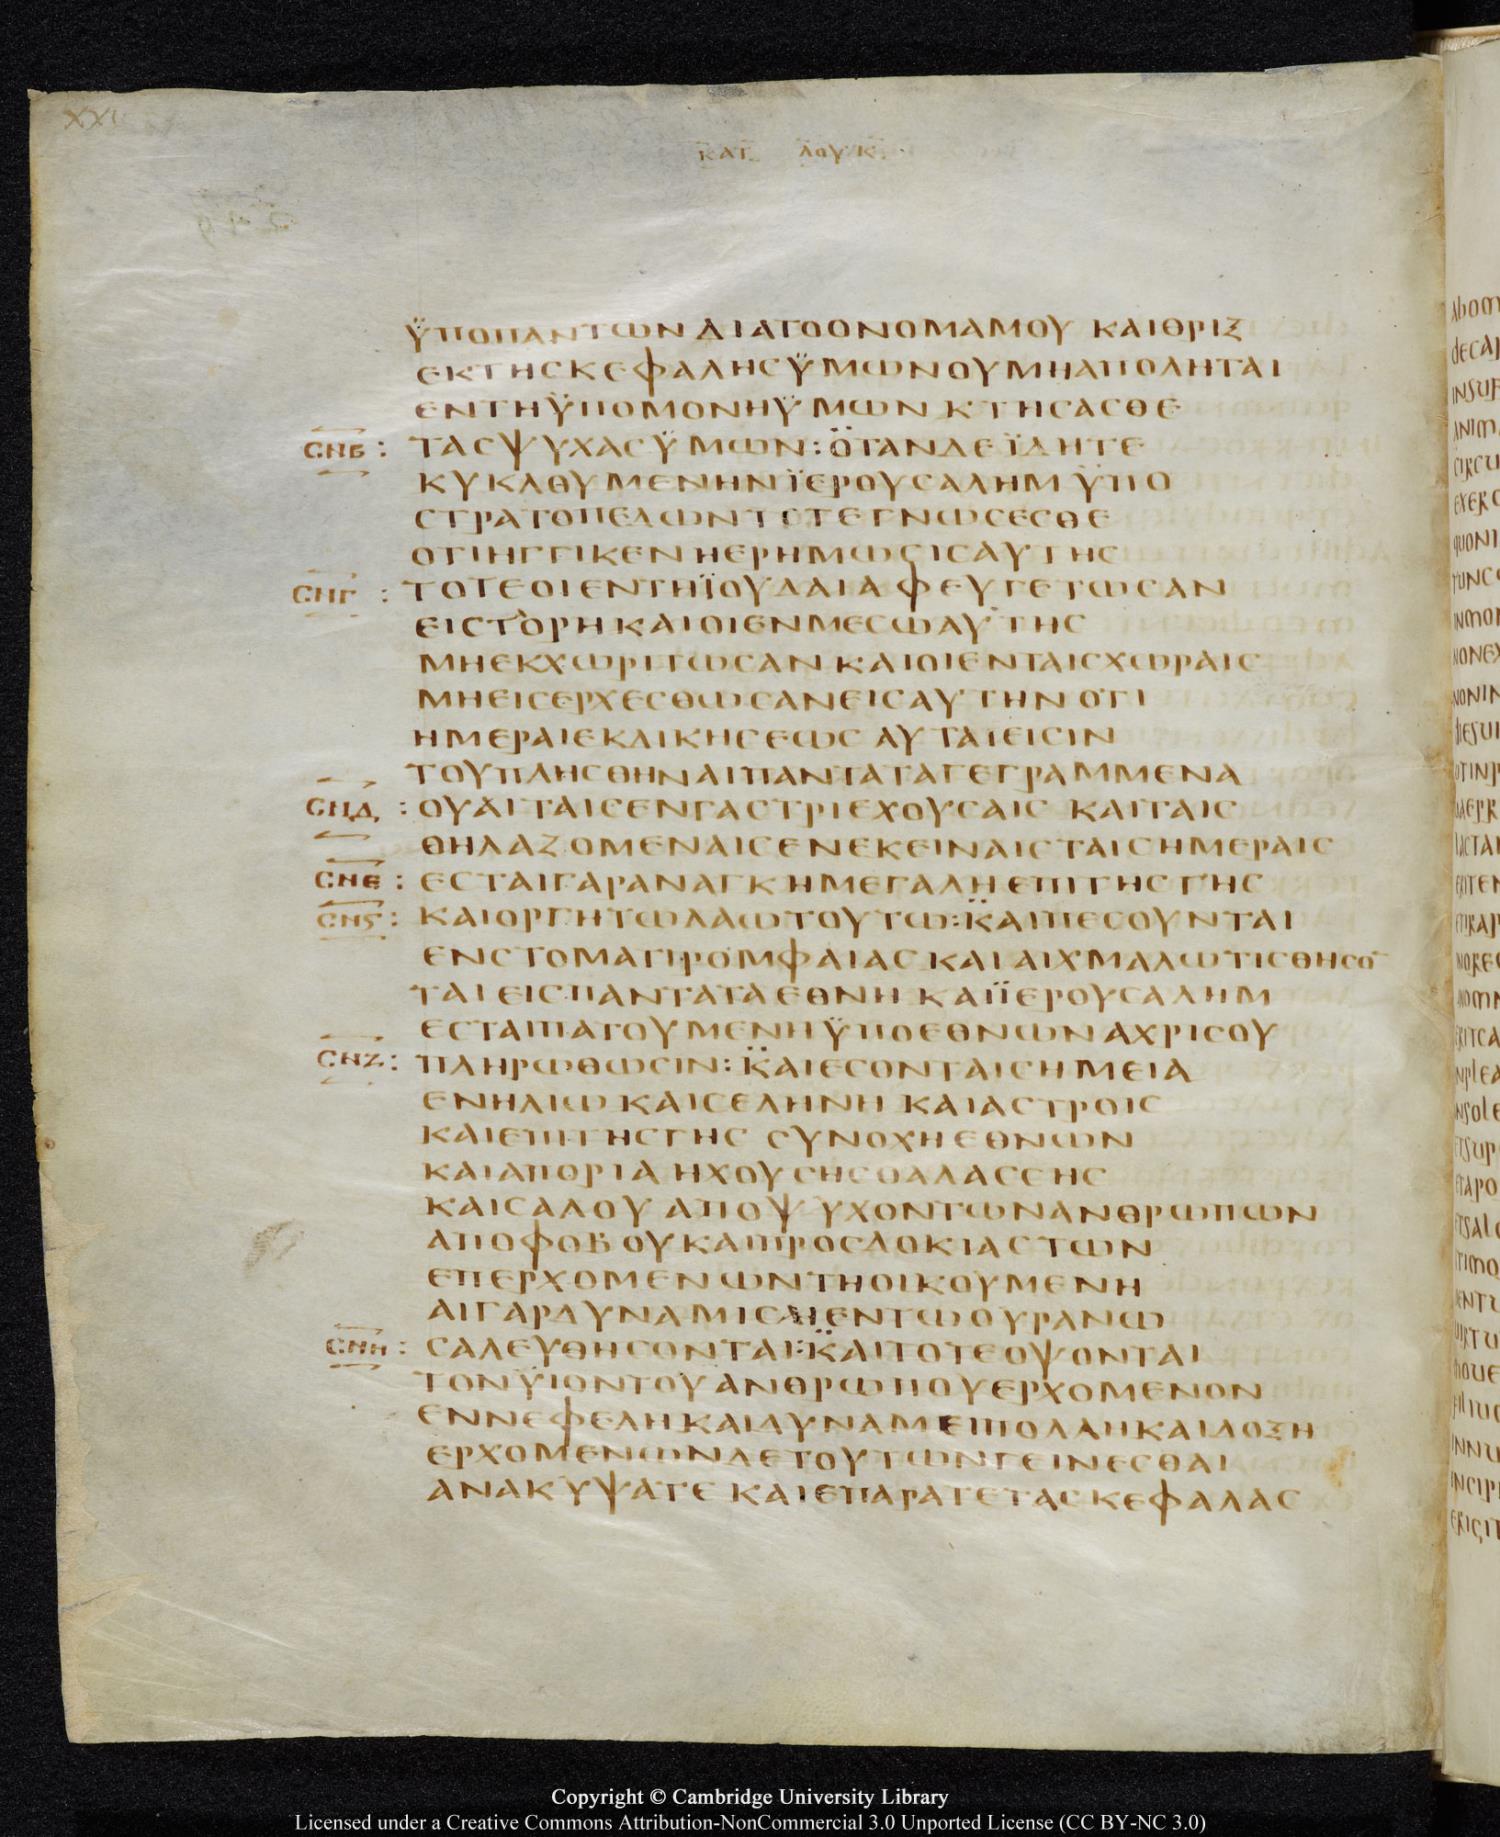 XXI
ΚΑΤ ΛΟΥΚ
ΫΠΟΠΑΝΤΩΝ ΔΙΑΤΟΟΝΟΜΑΜΟΥ ΚΑΙΘΡΙΞ
ΕΚΤΗΣΚΕΦΑΛΗΣΫΜΩΝΟΥΜΗΑΠΟΛΗΤΑΙ
ΕΝΤΗΫΠΟΜΟΝΗΫΜΩΝ ΚΤΗΣΑΣΘΕ
ΣΝΒ : ΤΑΣΨΥΧΑΣΫΜΩΝ : ΟΤΑΝΔΕΪΔΗΤΕ
ΚΥΚΛΘΥΜΕΝΗΝΪΕΡΟΥΣΑΛΗΜ ΫΠΟ
ΣΤΡΑΤΟΠΕΔΩΝΤΟΤΕΓΝΩΣΕΣΘΕ
ΟΤΙΗΓΓΙΚΕΝΗΕΡΗΜΩΣΙΣΑΥΤΗΣ
ΣΝΓ : ΤΟΤΕΟΙΕΝΤΗΪΟΥΔΑΙΑΦΕΥΓΕΤΩΣΑΝ
ΕΙΣΤΟΡΗΚΑΙΟΙΕΝΜΕΣΩΑΥΤΗΣ
ΜΗΕΚΧΩΡΙΤΩΣΑΝ ΚΑΙΟΙΕΝΤΑΙΣΧΩΡΑΙΣ
ΜΗΕΙΣΕΡΧΕΣΘΩΣΑΝΕΙΣΑΥΤΗΝ ΟΤΙ
ΗΜΕΡΑΙΕΚΔΙΚΗΣΕΩΣ ΑΥΤΑΙΕΙΣΙΝ
ΤΟΥΠΛΗΣΘΗΝΑΙΠΑΝΤΑΤΑΓΕΓΡΑΜΜΕΝΑ
ΣΝΔ : ΟΥΑΙΤΑΙΣΕΝΓΑΣΤΡΙΕΧΟΥΣΑΙΣ ΚΑΙΤΑΙΣ
ΘΗΛΑΖΟΜΕΝΑΙΣΕΝΕΚΕΙΝΑΙΣΤΑΙΣΗΜΕΡΑΙΣ
ΣΝΕ : ΕΣΤΑΙΓΑΡΑΝΑΓΚΗΜΕΓΑΛΗΕΠΙΤΗΣΓΗΣ
ΣΝϚ : ΚΑΙΟΡΓΗΤΩΛΑΩΤΟΥΤΩ : ΚΑΙΠΕΣΟΥΝΤΑΙ
ΕΝΣΤΟΜΑΤΙΡΟΜΦΑΙΑΣ ΚΑΙΑΙΧΜΑΛΩΤΙΣΘΗΣΟ̅
ΤΑΙΕΙΣΠΑΝΤΑΤΑΕΘΝΗ ΚΑΙΪΕΡΟΥΣΑΛΗΜ
ΕΣΤΑΙΠΑΤΟΥΜΕΝΗΫΠΟΕΘΝΩΝΑΧΡΙΣΟΥ
ΣΝΖ : ΠΛΗΡΩΘΩΣΙΝ : ΚΑΙΕΣΟΝΤΑΙΣΗΜΕΙΑ
ΕΝΗΛΙΩ ΚΑΙΣΕΛΗΝΗ ΚΑΙΑΣΤΡΟΙΣ
ΚΑΙΕΠΙΤΗΣΓΗΣ ΣΥΝΟΧΗΕΘΝΩΝ
ΚΑΙΑΠΟΡΙΑ ΗΧΟΥΣΗΣΘΑΛΑΣΣΗΣ
ΚΑΙΣΑΛΟΥ ΑΠΟΨΥΧΟΝΤΩΝΑΝΘΡΩΠΩΝ
ΑΠΟΦΟΒΟΥΚΑΙΠΡΟΣΔΟΚΙΑΣΤΩΝ
ΕΠΕΡΧΟΜΕΝΩΝΤΗΟΙΚΟΥΜΕΝΗ
ΑΙΓΑΡΔΥΝΑΜΙΣΑΙΕΝΤΩΟΥΡΑΝΩ
ΣΝΗ : ΣΑΛΕΥΘΗΣΟΝΤΑΙ : ΚΑΙΤΟΤΕΟΨΟΝΤΑΙ
ΤΟΝΫΙΟΝΤΟΥΑΝΘΡΩΠΟΥΕΡΧΟΜΕΝΟΝ
ΕΝΝΕΦΕΛΗΚΑΙΔΥΝΑΜΕΙΠΟΛΛΗΚΑΙΔΟΞΗ
ΕΡΧΟΜΕΝΩΝΔΕΤΟΥΤΩΝΓΕΙΝΕΣΘΑΙ
ΑΝΑΚΥΨΑΤΕ ΚΑΙΕΠΑΡΑΤΕΤΑΣΚΕΦΑΛΑΣ
Copyright © Cambridge University Library
Licensed under a Creative Commons Attribution-NonCommercial 3.0 Unported License (CC BY-NC 3.0)